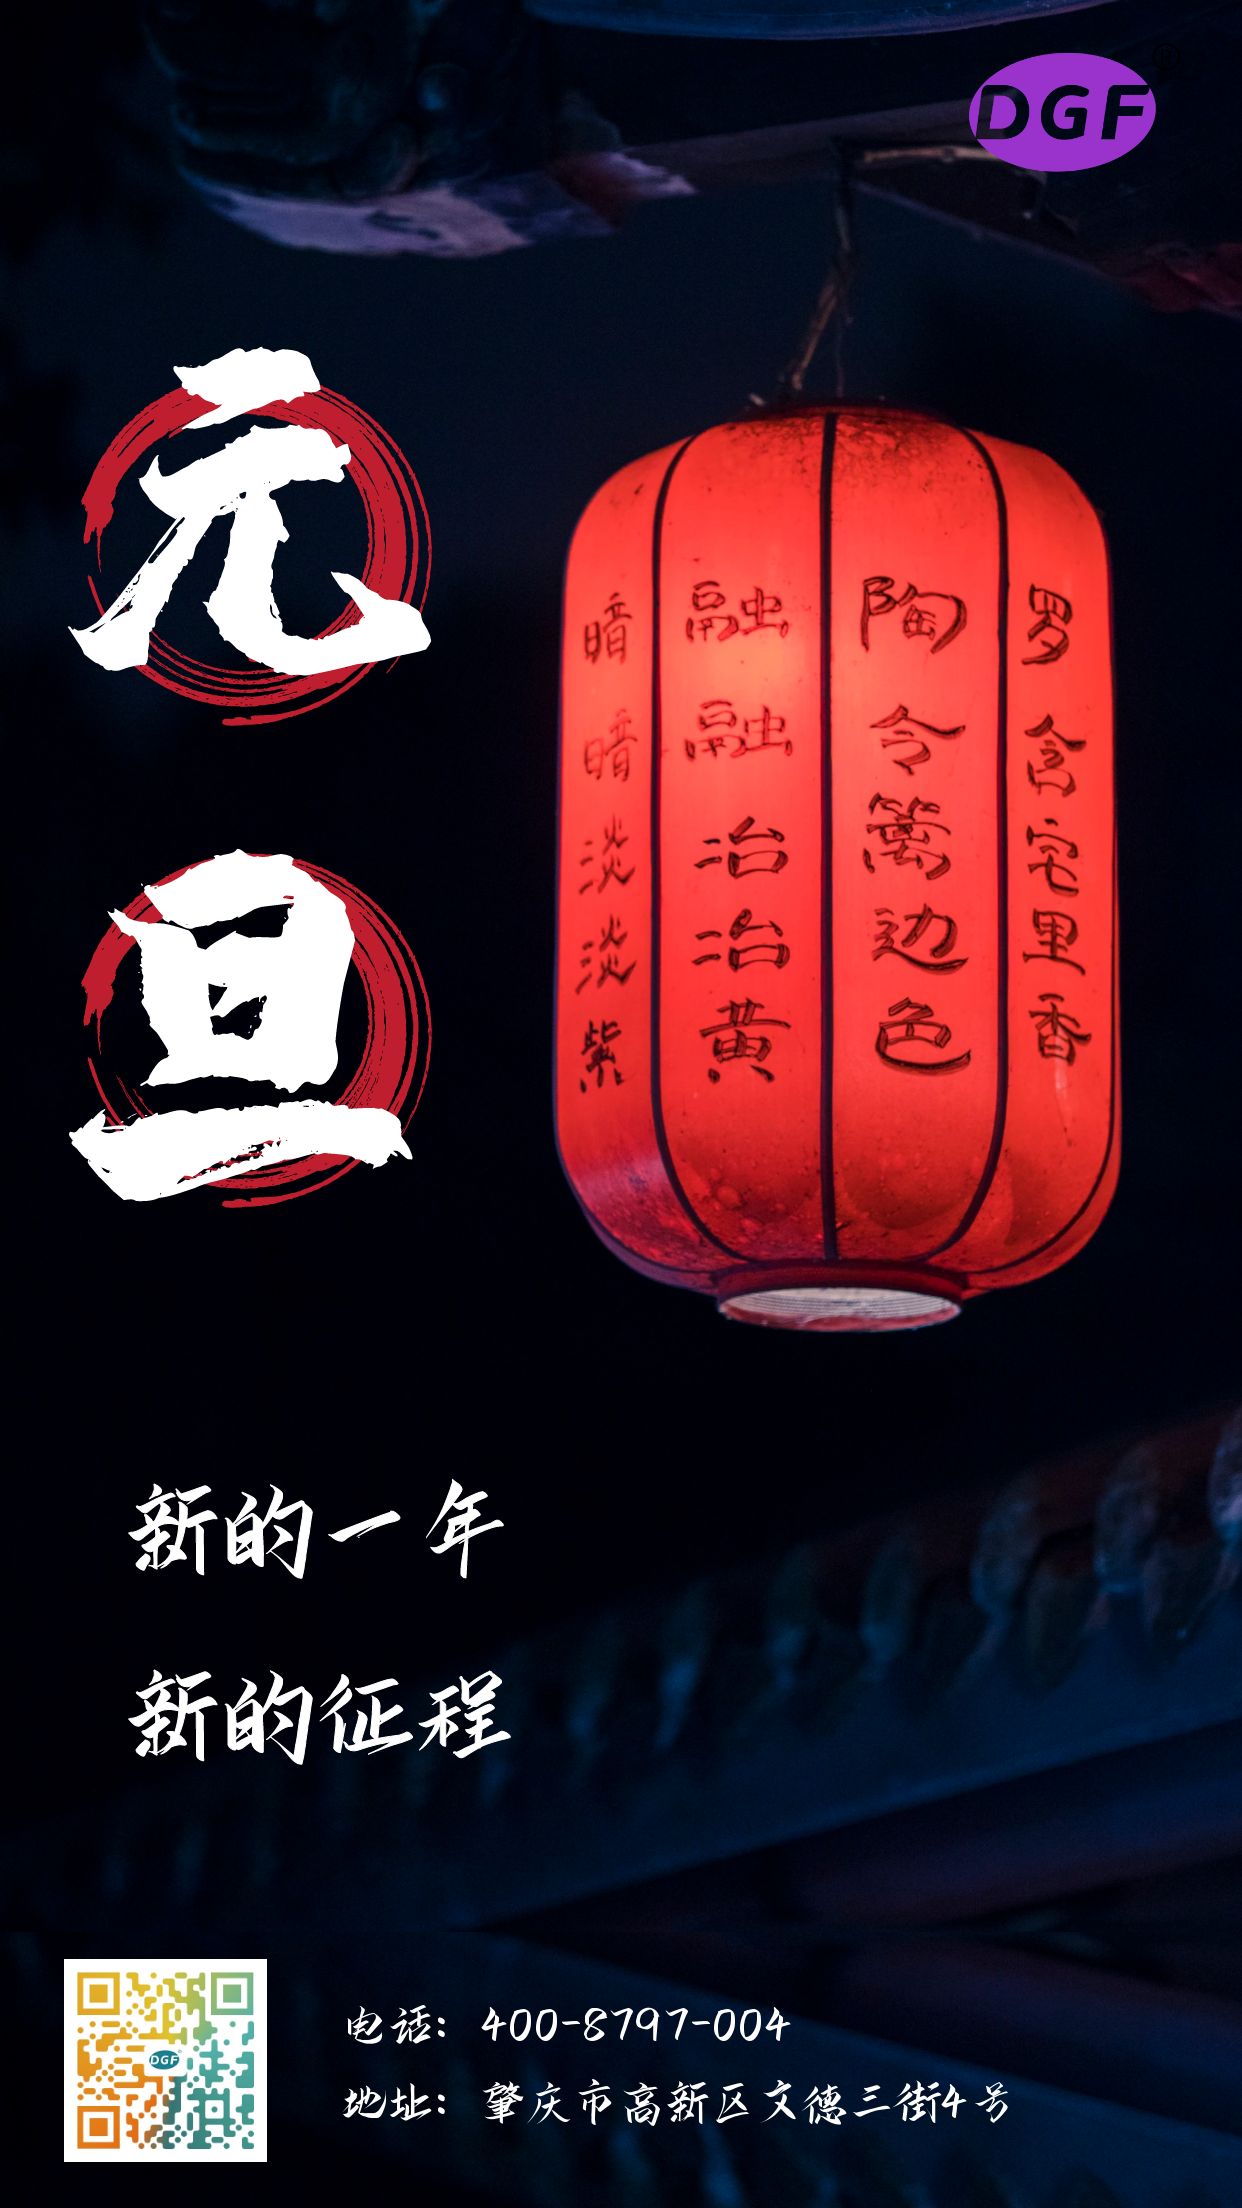 DGF®
元旦
暗暗淡淡紫
融融冶冶黄
陶令篱边色
罗含宅里香
新的一年
新的征程
DGF
电话：400-8797-004
地址：肇庆市高新区文德三街4号